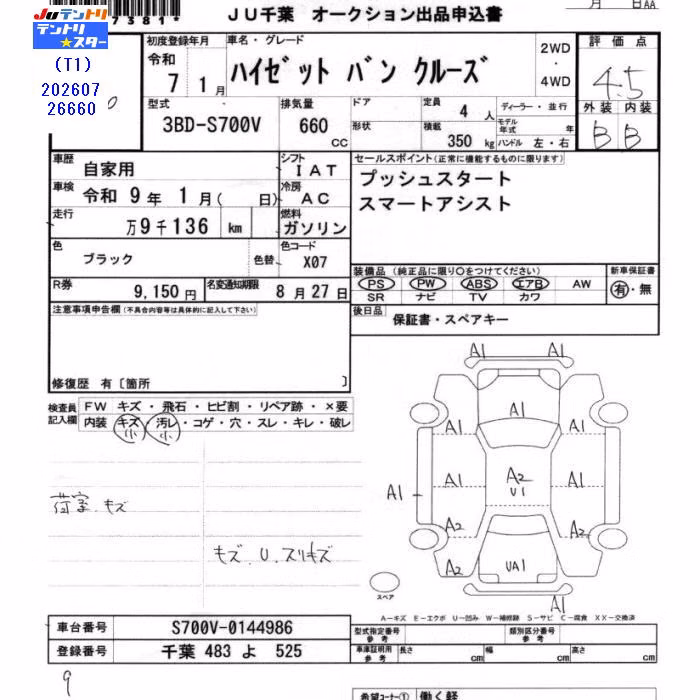 7381*
JU千葉 オークション出品申込書
月 日AA
JUテントリ
テントリ
スター
(T1)
202607
26660
初度登録年月
令和
7 1月
車名・グレード
ハイゼット バン クルーズ
2WD
・
4WD
評価点
4.5
外装 内装
B B
型式
3BD-S700V
排気量
660
CC
ドア
形状
定員 4 人
積載 350 kg
ディーラー・並行
モデル年式 年
ハンドル 左・右
車歴 自家用
車検 令和 9年 1月( 日)
走行 万9千136 km
シフト IAT
冷房 AC
燃料 ガソリン
セールスポイント(正常に機能するものに限ります)
プッシュスタート
スマートアシスト
色 ブラック 色替
色コード X07
R券 9,150円
名変通知期限 8月27日
装備品 (純正品に限り○をつけてください)
PS PW ABS エアB AW
SR ナビ TV カワ
新車保証書
有・無
後日品 保証書・スペアキー
注意事項申告欄(不具合内容等は具体的に記入して下さい)
修復歴 有〔箇所 〕
検査員記入欄
FW キズ・飛石・ヒビ割・リペア跡・×要
内装 キズ・汚レ・コゲ・穴・スレ・キレ・破レ
小 小
荷室 キズ
キズ、U、スリキズ
A1 A1
A1
A1 A1
A1 A1 A2 A1 A1
U1
A2 A2
A2 UA1 A2
A1
スペア
A-キズ E-エクボ U-凹み W-補修跡 S-サビ C-腐食 XX-交換済
車台番号 S700V-0144986
登録番号 千葉 483 よ 525
型式指定番号 参考
類別区分番号 参考
車庫証明用 参考 長さ cm 幅 cm 高さ cm
9
希望コーナー① 働く軽